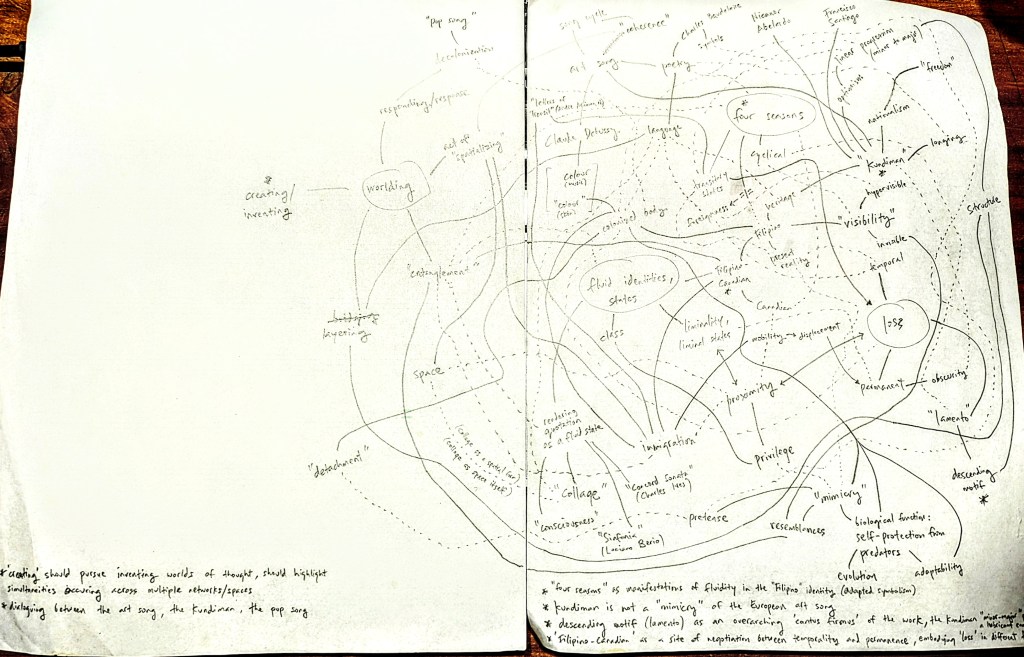 "pop song"
decolonization
responding/response
act of
"spatializing"
worlding
*
creating/
inventing
"entanglement"
layering
space
(collage as a spatial
(collage as space itself)
"detachment"
* 'creating' should pursue inventing worlds of thought, should highlight
simultaneities occuring across multiple networks/spaces
* dialoguing between the art song, the kundiman, the pop song.
song cycle
"coherence"
art song
Charles Baudelaire
symbols
poetry
Nicanor
Abelardo
Francisco
Santiago
linear progression
(minor to major)
optimism
"freedom"
nationalism
longing
"kundiman"
*
*
four seasons
cyclical
Claude Debussy
language
colour
(music)
"colour"
(skin)
colonized body
transitory
states
heritage
Filipino
present
reality
hypervisible
"visibility"
invisible
temporal
structure
fluid identities,
states
Filipino
Canadian
*
Canadian
class
liminality,
liminal states
mobility
displacement
loss
permanent
obscurity
proximity
"lamento"
descending
motif
*
rendering
quotation
as a fluid state
immigration
privilege
"Collage"
"Concord Sonata"
(Charles Ives)
"consciousness"
"Sinfonia"
(Luciano Berio)
pretense
"mimicry"
resemblances
biological function:
self-protection from
predators
evolution
adaptability
* "four seasons" as manifestations of fluidity in the "Filipino" identity (adapted symbolism)
* kundiman is not a "mimicry" of the European art song
* descending motif (lamento) as an overarching 'cantus firmus' of the work, the kundiman
* 'Filipino-Canadian' as a site of negotiation between temporality and permanence, embodying 'loss' in different